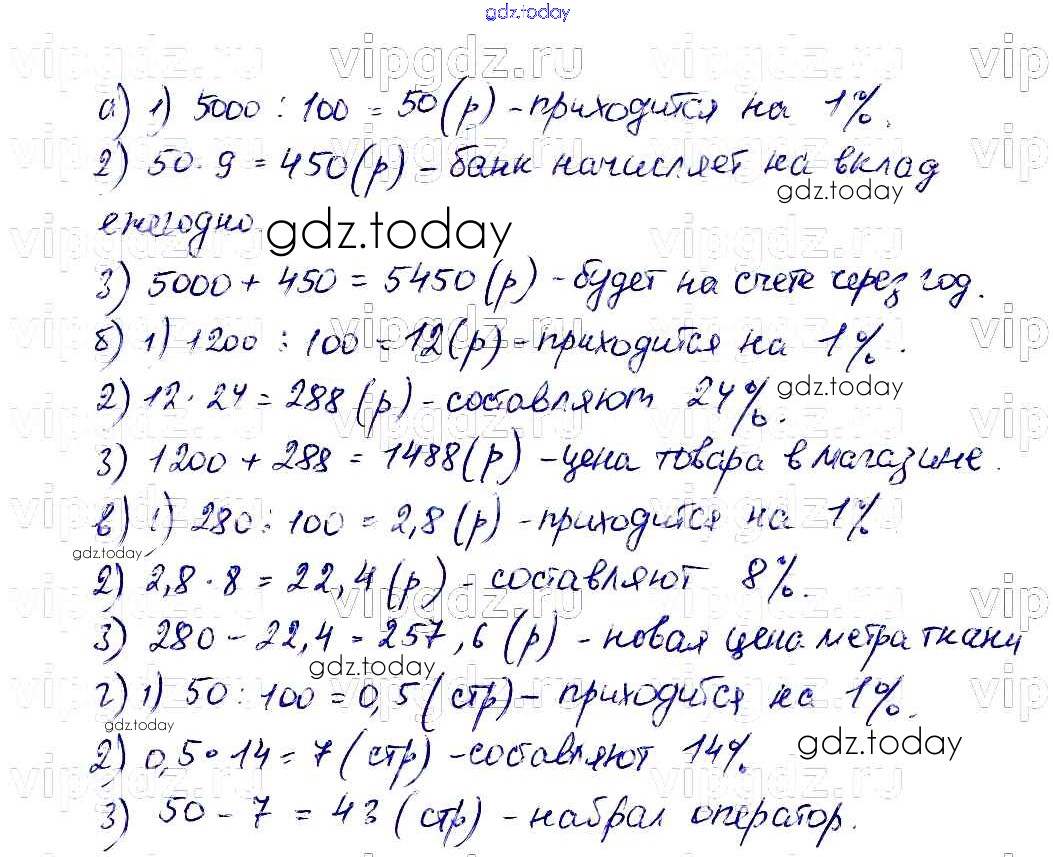 gdz.today
vipgdz.ru vipgdz.ru vip
а) 1) 5000 : 100 = 50 (р) - приходится на 1%.
2) 50 · 9 = 450 (р) - банк начисляет на вклад
gdz.today
ежегодно.
gdz.today
3) 5000 + 450 = 5450 (р) - будет на счете через год.
б) 1) 1200 : 100 = 12 (р) - приходится на 1%.
gdz.today
2) 12 · 24 = 288 (р) - составляют 24%.
3) 1200 + 288 = 1488 (р) - цена товара в магазине.
в) 1) 280 : 100 = 2,8 (р) - приходится на 1%
gdz.today
2) 2,8 · 8 = 22,4 (р) - составляют 8%.
3) 280 - 22,4 = 257,6 (р) - новая цена метра ткани
gdz.today
г) 1) 50 : 100 = 0,5 (стр) - приходится на 1%.
gdz.today
gdz.today
2) 0,5 · 14 = 7 (стр) - составляют 14%
3) 50 - 7 = 43 (стр) - набрал оператор.